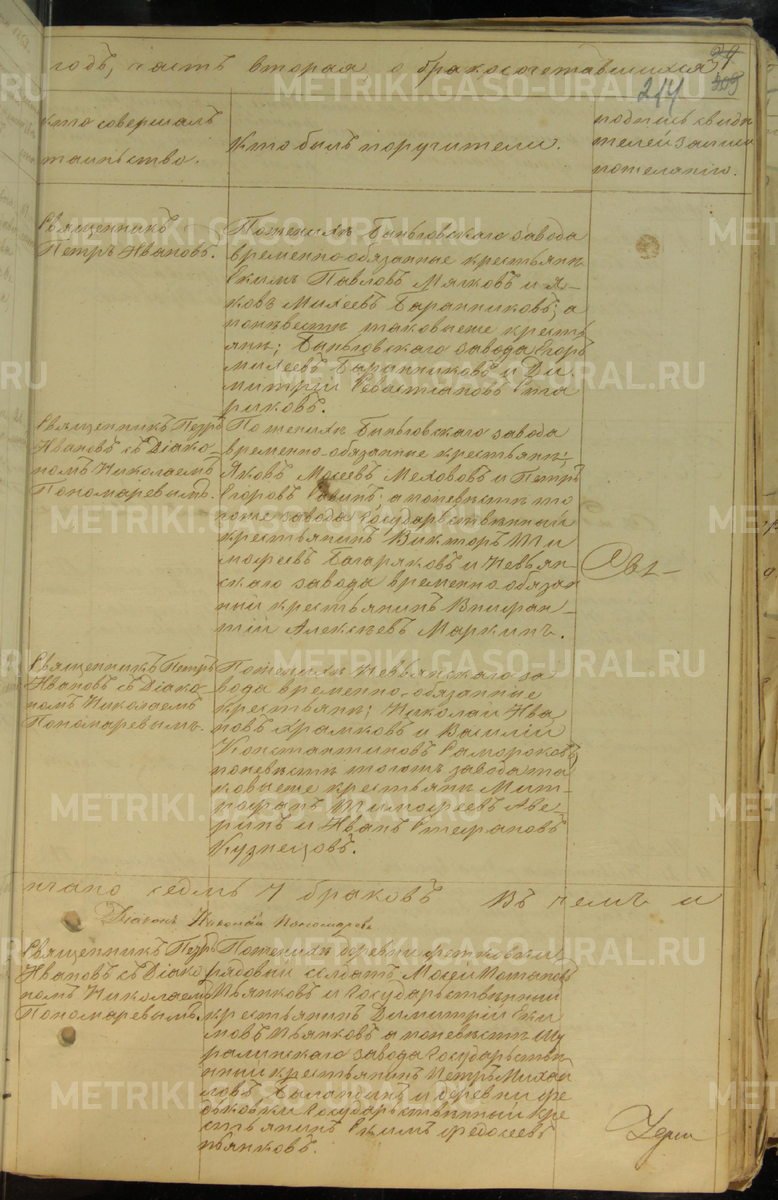 годъ, часть вторая о бракосочетавшихся
214
кто совершалъ
таинство.
Кто былъ поручители.
подпись свиде
телей записи
по желанію.
Священникъ
Петръ Ивановъ.
По женихѣ Быньговскаго завода
временно-обязанные крестьяне
Екимъ Павловъ Мячковъ и Я-
ковъ Михеевъ Баранниковъ; а
по невѣстѣ таковые же кресть
яне; Быньговскаго завода Егоръ
Михеевъ Баранниковъ и Ди
митрій Севастіановъ Ста
риковъ.
Священникъ Петръ
Ивановъ съ Діако-
номъ Николаемъ
Пономаревымъ.
По женихѣ Быньговскаго завода
временно-обязанные крестьяне;
Яковъ Мосеевъ и Петръ
Егоровъ Савинъ; а по невѣстѣ то
го же завода Государственный
крестьянинъ Викторъ Ти
мофеевъ Багаряковъ и Невьян-
скаго завода временно-обязан
ный крестьянинъ Внифан-
тій Алексѣевъ Маркинъ.
Священникъ Петръ
Ивановъ съ Діако-
номъ Николаемъ
Пономаревымъ.
По женихѣ Невьянскаго за
вода временно-обязанные
крестьяне; Николай Ива
новъ Храмковъ и Василій
Константиновъ Саморoковъ
по невѣстѣ тогожъ завода та
ковые же крестьяне Мит-
рофанъ Тимофеевъ Аве-
ринъ и Иванъ Стефановъ
Кузнецовъ.
чано седмь 7 браковъ Въ чемъ и
Діаконъ Николай Пономаревъ
Священникъ Петръ
Ивановъ съ Діако
номъ Николаемъ
Пономаревымъ.
По женихѣ деревни Федьковки
рядовой солдатъ Мосей Потаповъ
Пьянковъ и Государственный
крестьянинъ Димитрій Еки
мовъ Пьянковъ а по невѣстѣ Шу
ралинскаго завода Государстве
нный крестьянинъ Петръ Михаи
ловъ Баландинъ и деревни Фе
дьковки Государственный кре
стьянинъ Екимъ Федосеевъ
Пьянковъ.
METRIKI.GASO-URAL.RU